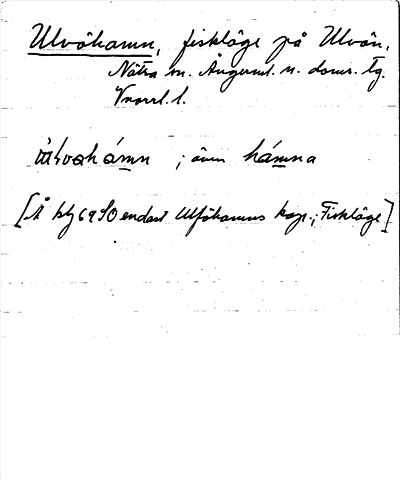 Ulvöhamn, fiskläge på Ulvön,
Nätra sn. Ångerml. n. doms. tg.
Vnorrl. l.
ùlvɷhámn ; även hámna
[Å blj 6950 endast Ulföhamns kap.; Fiskläge]